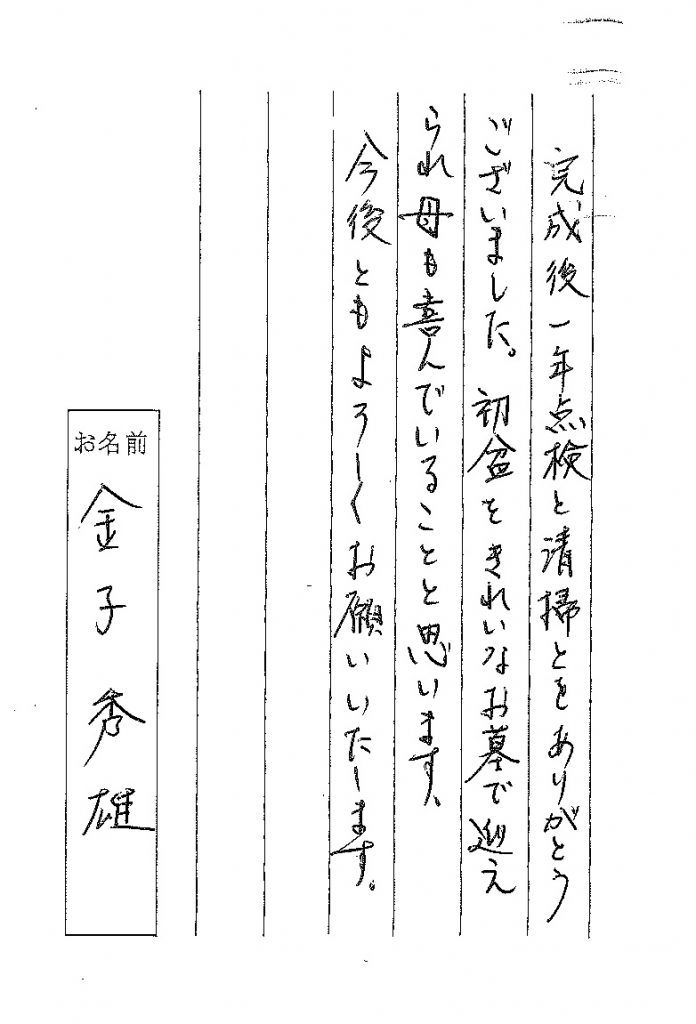 完成後一年点検と清掃とをありがとう
ございました。初盆をきれいなお墓で迎え
られ母も喜んでいることと思います、
今後ともよろしくお願いいたします。
お名前
金子秀雄